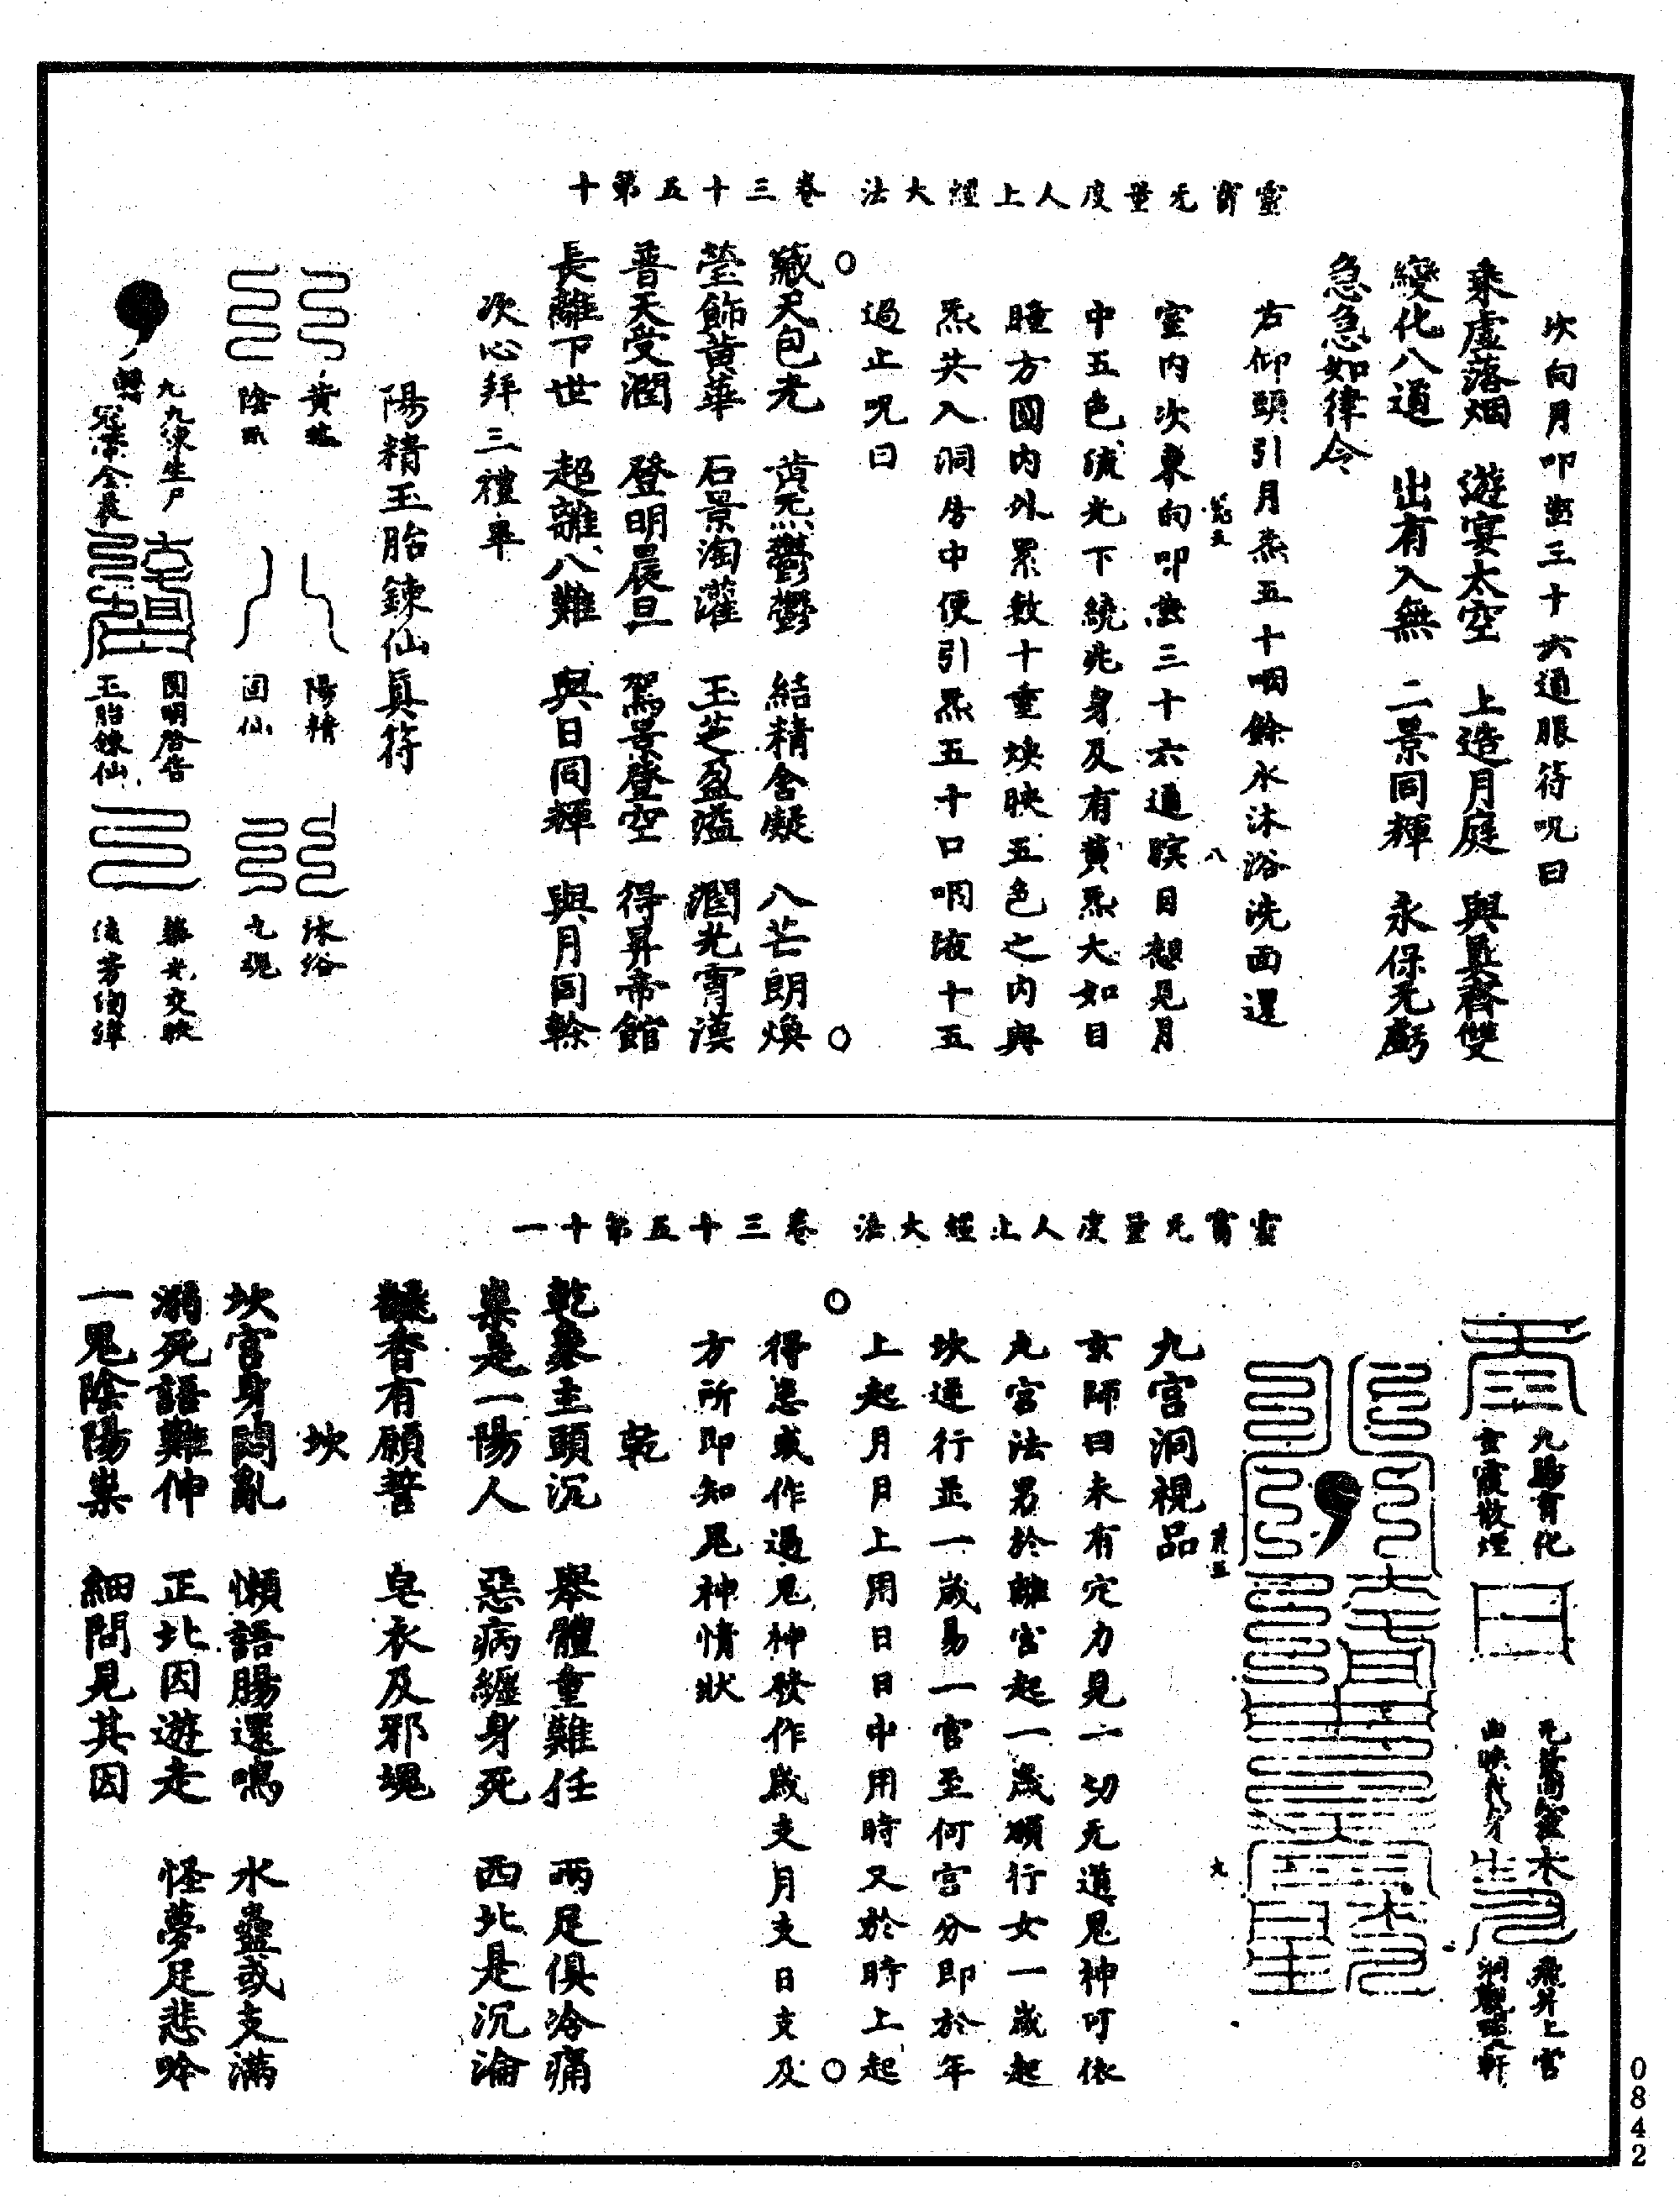 靈寳无量度人上經大法　卷三十五第十
次向月叩齒三十六通服符呪曰
乘虛落烟　遊宴太空　上造月庭　與真齊雙
變化八道　出有入無　二景同輝　永保无虧
急急如律令
右仰頭引月炁五十咽餘水沐浴洗面還
室內次東向叩齒三十六通瞑目想見月
中五色流光下繞兆身及有黃炁大如目
瞳方圓內外累數十重煥映五色之內與
炁共入洞房中便引炁五十口咽液十五
過止呪曰
藏天包光　黃炁鬱鬱　結精含凝　八芒朗煥
瑩飾黃華　石景淘灌　玉芝盈溢　潤光霄漢
普天受潤　登明晨旦　駕景登空　得昇帝館
長離下世　超離八難　與日同輝　與月同幹
次心拜三禮畢
陽精玉胎鍊仙真符
陽精
沐浴
陰
固仙
九魂
圓明啓告
玉胎鍊仙
華光交映
靈寳无量度人上經大法　卷三十五第十一
九陽育化
玄霞散煙
飛昇上宮
九宮洞視品
玄師曰未有定力見一切无道鬼神可依
九宮法男於離宮起一歲順行女一歲起
坎逆行並一歲易一宮至何宮分即於年
上起月月上用日日中用時又於時上起
得患或作過鬼神發作歲支月支日支及
方所即知鬼神情狀
乾
乾象主頭沉　舉體重難任　兩足俱冷痛
巢是一陽人　惡病纏身死　西北是沉淪
齼香有願誓　皂衣及邪魂
坎
坎宮身悶亂　懶語腸還鳴　水蠱或支滿
溺死語難伸　正北因遊走　怪夢足悲吟
一鬼陰陽巢　細問見其因
0842